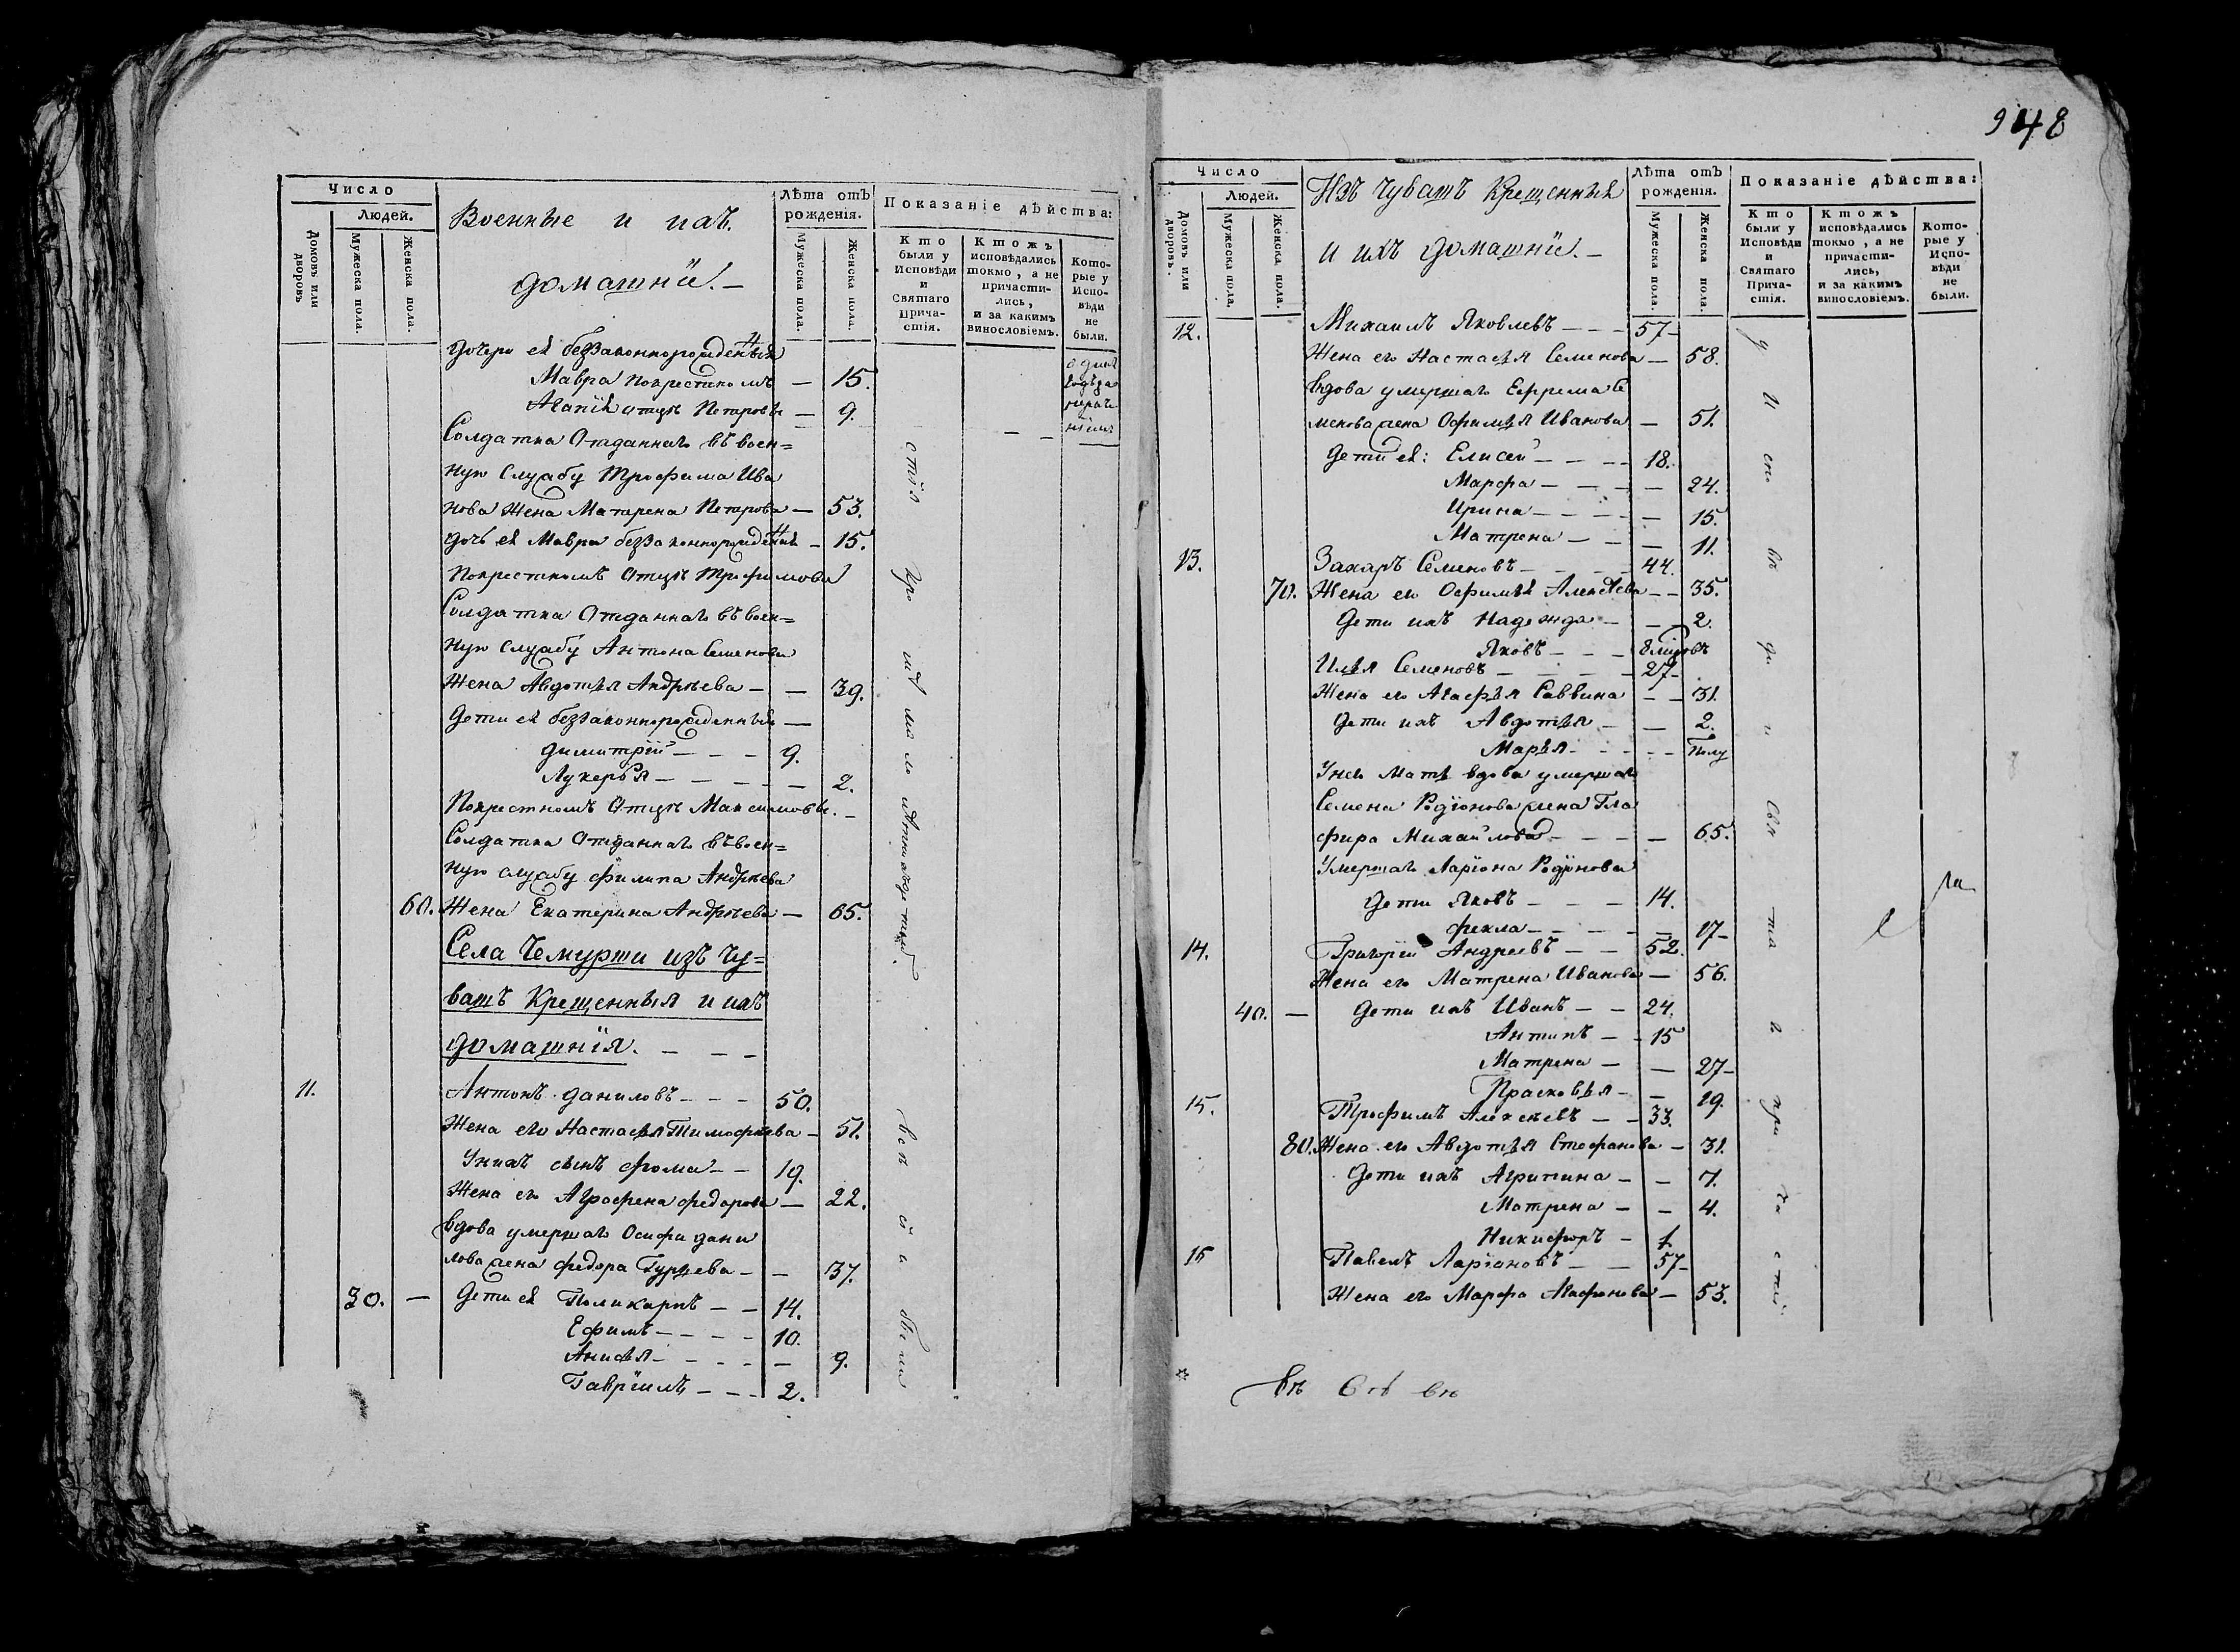 Число
Людей.
Домовъ или дворовъ
Мужеска пола.
Женска пола.
Военные и ихъ
домашніи. —
Лѣта отъ рожденія.
Мужеска пола.
Женска пола.
Показаніе дѣйства:
Кто были у Исповѣди и Святаго Прича-стія.
Ктожъ исповѣдались токмо, а не причасти-лись, и за какимъ винословіемъ.
Кото-рые у Испо-вѣди не были.
дочери ея беззаконнорожденныя
Мавра покрестномъ — 15.
отцѣ Петровы — 9.
Солдатка Отданнаго въ воен=
ную Службу Трофима Ива
нова Жена Матрена Петрова — 53.
дочь ея Мавра беззаконнорожденная — 15.
Покрестномъ Отцѣ Трофимова
Солдатка Отданнаго въ воен=
ную Службу Антона Семенова
Жена Авдотья Андрѣева — — 39.
Дети ея беззаконнорожденныя —
Димитрій — — — 9.
Лукерья — — — — — 2.
Покрестномъ Отцѣ Максимовы. —
Солдатка Отданнаго въ воен=
ную службу Филипа Андрѣева
60. Жена Екатерина Андрѣева — 65.
Села Чемурши изъ чу=
вашъ Крещенныя и ихъ
домашнія. — — —
11. Антонъ Даниловъ — — — 50.
Жена его Настасья Тимофѣева — 51.
У нихъ сынъ Фома — — 19.
Жена его Аграфена Федорова — 22.
Вдова умершаго Осифа Дани
лова жена Федора Гурьева — — 37.
30. — Дети ея Поликарпъ — — 14.
Ефимъ — — — — 10.
Анисья — — — — — 9.
Гавріилъ — — — 2.
948
Число
Людей.
Домовъ или дворовъ.
Мужеска пола.
Женска пола.
Изъ Чувашъ Крещенныя
и ихъ домашніи. —
Лѣта отъ рожденія.
Мужеска пола.
Женска пола.
Показаніе дѣйства:
Кто были у Исповѣди и Святаго Прича-стія.
Ктожъ исповѣдались токмо, а не причасти-лись, и за какимъ винословіемъ.
Кото-рые у Испо-вѣди не были.
12. Михаилъ Яковлевъ — — — 57 —
Жена его Настасья Семенова — 58.
Вдова умершаго Ефрема Се
менова жена Офимья Иванова — 51.
Дети ея: Елисей — — — — 18.
Марфа — — — — — 24.
Ирина — — — — — 15.
Матрена — — — 11.
13. Захаръ Семеновъ — — — — 44.
70. Жена его Офимья Алексѣева — — 35.
Дети ихъ Надежда — — — 2.
Яковъ — — —
Илья Семеновъ — — — — — 27 —
Жена его Агафья Саввина — — 31.
Дети ихъ Авдотья — — 2.
Марья — — — — — Полу
У него Мать вдова умершаго
Семена Родіонова жена Гла
фира Михайлова — — — — 65.
Умершаго Ларіона Родіонова
Дети Яковъ — — — 14.
Фекла — — — — — 17 —
14. Григорій Андреевъ — — 52.
Жена его Матрена Иванова — 56.
40. — Дети ихъ Иванъ — — 24.
Антипъ — — 15
Матрена — — 27 —
Прасковья — — 19.
15. Трофимъ Алексѣевъ — — 33.
80. Жена его Авдотья Стефанова — 31.
Дети ихъ Агрипина — — 7.
Матрена — — 4.
Никифоръ — 1
16 Павелъ Ларіоновъ — — 57 —
Жена его Марфа Агафонова — 53.